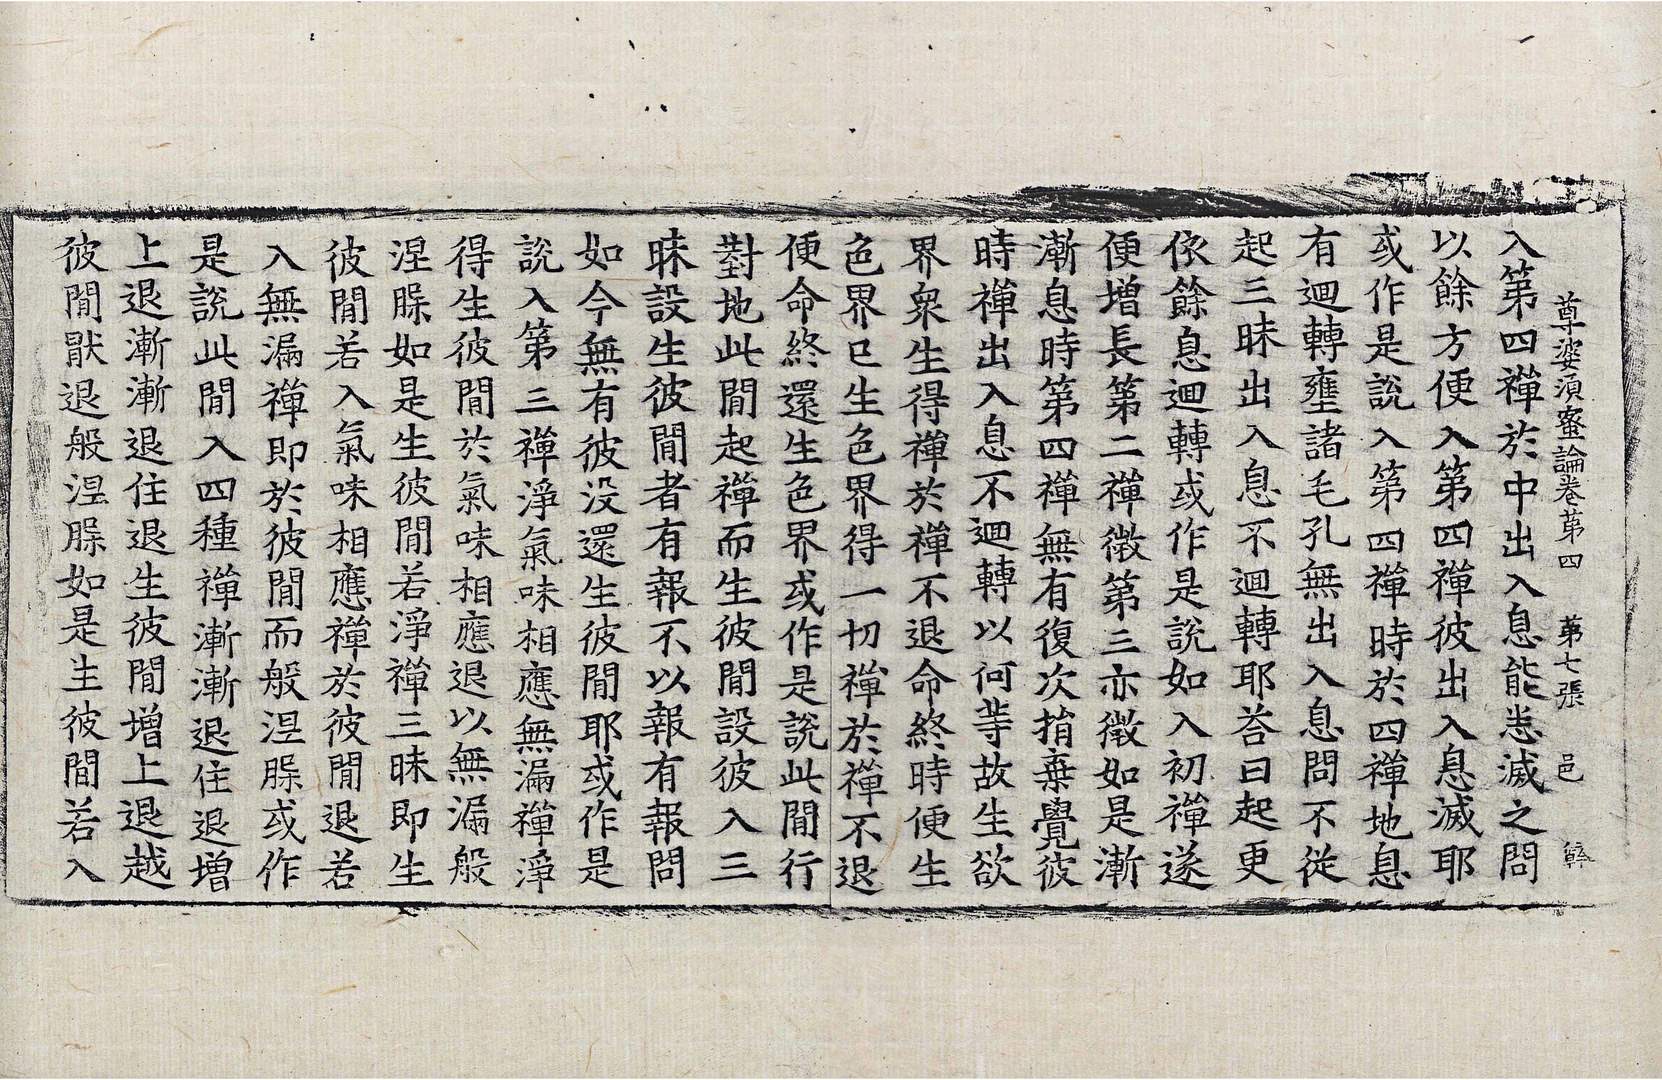 尊婆須蜜論卷第四　第七張　邑
入第四禪於中出入息能悉滅之問
以餘方便入第四禪彼出入息滅耶
或作是說入第四禪時於四禪地息
有迴轉壅諸毛孔無出入息問不從
起三昧出入息不迴轉耶荅曰起更
依餘息迴轉或作是說如入初禪遂
便增長第二禪徵第三亦徵如是漸
漸息時第四禪無有復次捐棄覺彼
時禪出入息不迴轉以何等故生欲
界衆生得禪於禪不退命終時便生
色界已生色界得一切禪於禪不退
便命終還生色界或作是說此間行
對地此間起禪而生彼間設彼入三
昧設生彼間者有報不以報有報問
如今無有彼没還生彼間耶或作是
說入第三禪淨氣味相應無漏禪淨
得生彼間於氣味相應退以無漏般
涅槃如是生彼間若淨禪三昧即生
彼間若入氣味相應禪於彼間退若
入無漏禪即於彼間而般涅槃或作
是說此間入四種禪漸漸退住退增
上退漸漸退住退生彼間增上退越
彼間猒退般涅槃如是生彼間若入